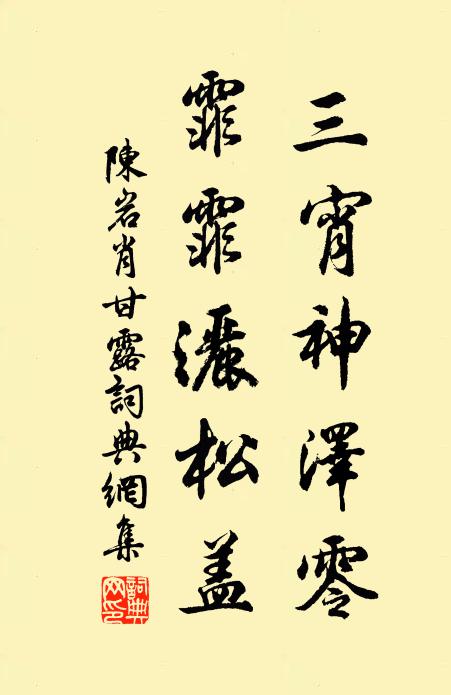 三宵神澤零
霏霏灑松盖
陳岩肖甘露詞典網集
詞典網印